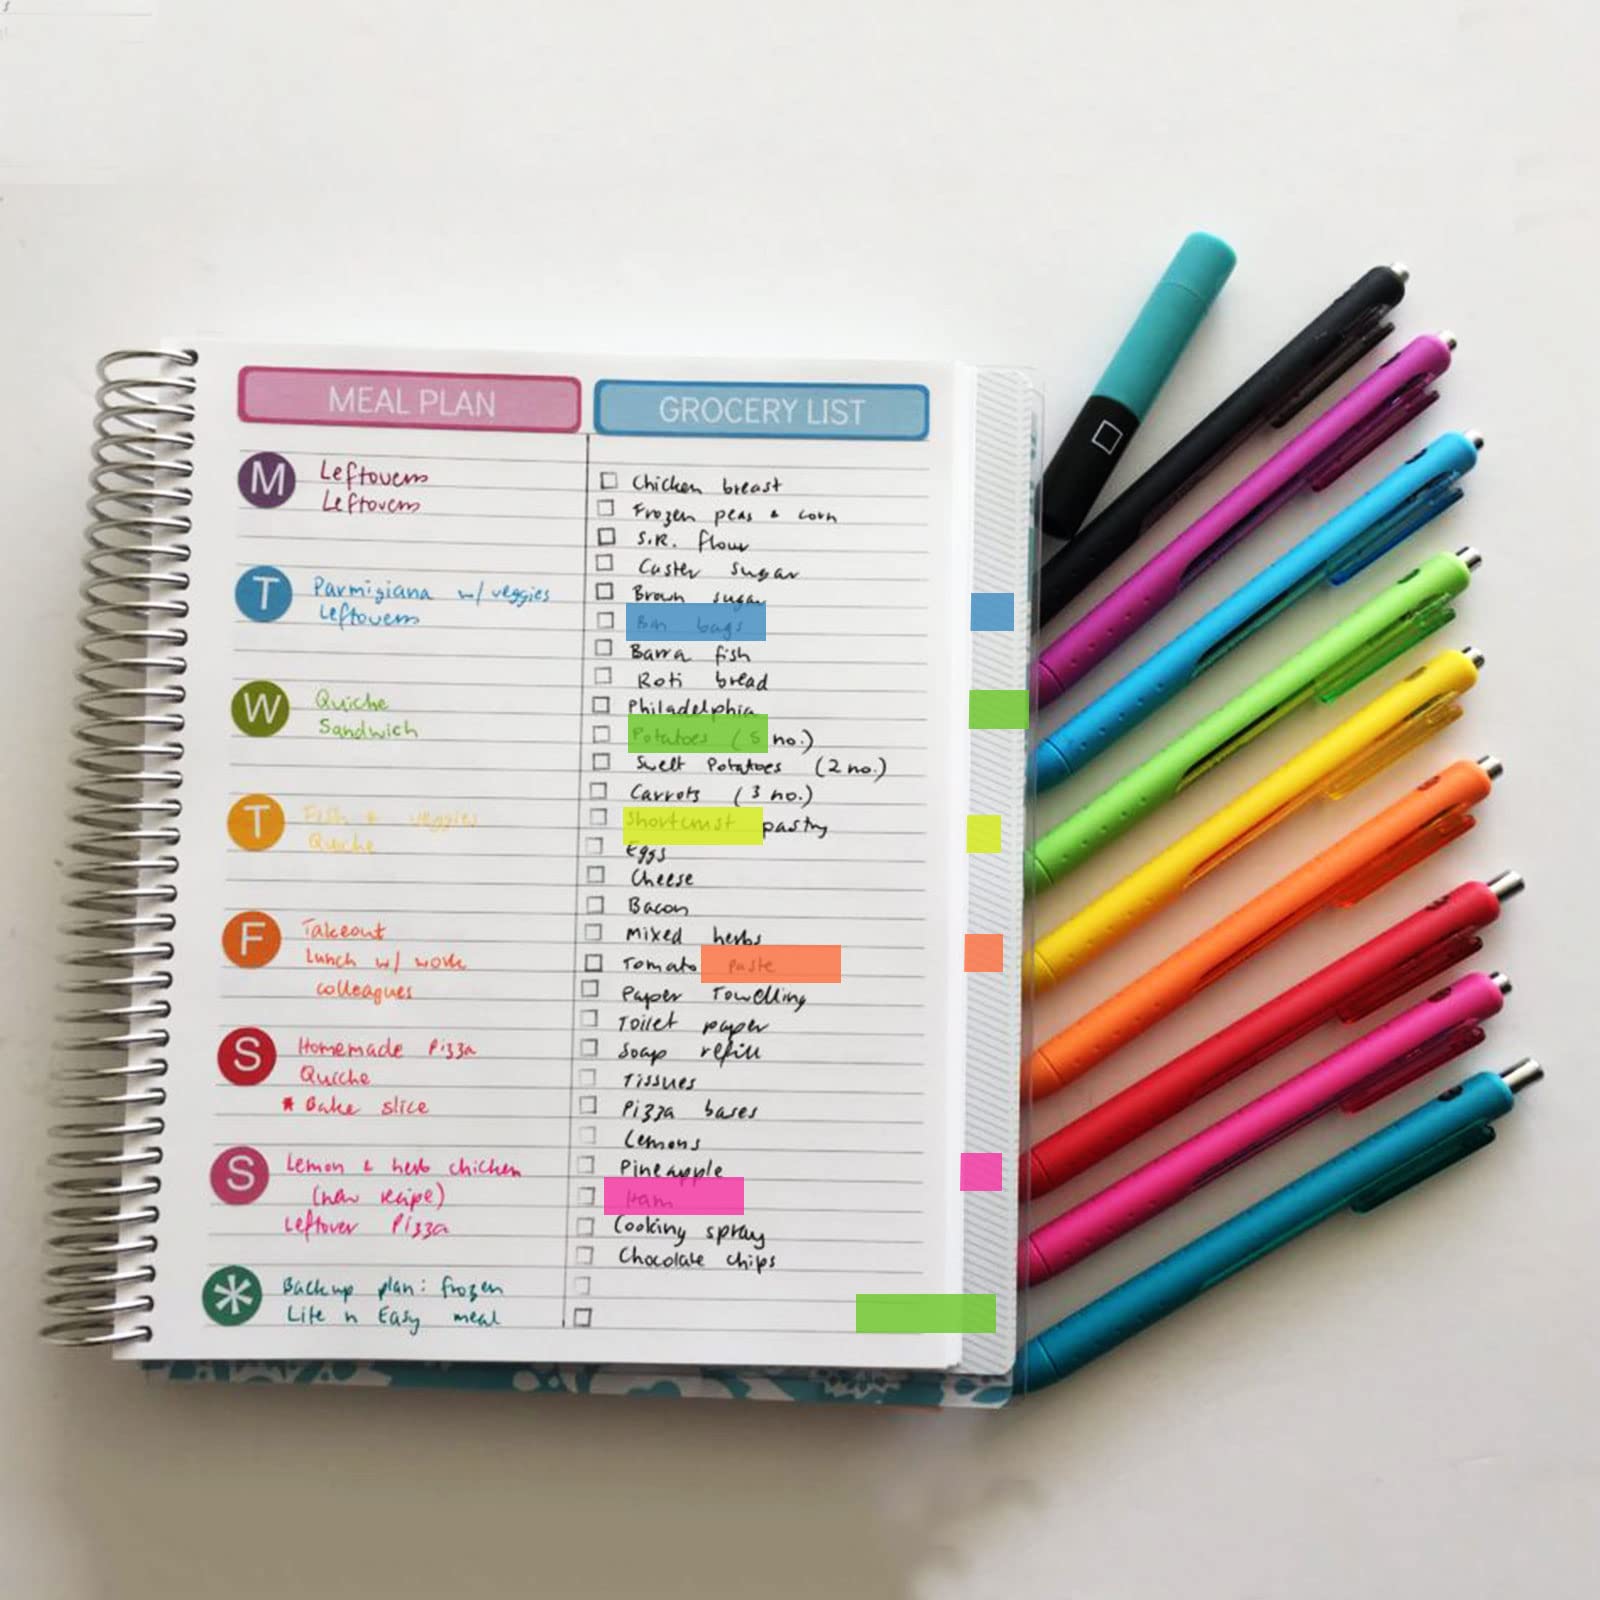 MEAL PLAN
M
Leftovers
Leftovers
T
Parmigiana w/ veggies
Leftovers
W
Quiche
Sandwich
T
Fish & veggies
Quiche
F
Takeout
Lunch w/ work
colleagues
S
Homemade Pizza
Quiche
* Bake slice
S
Lemon & herb chicken
(new recipe)
Leftover Pizza
*
Backup plan: frozen
Lite n Easy meal
GROCERY LIST
Chicken breast
Frozen peas & corn
S.R. flour
Caster sugar
Brown sugar
Bin bags
Barra fish
Roti bread
Philadelphia
Potatoes (5 no.)
Swelt Potatoes (2 no.)
Carrots (3 no.)
Shortcrust pastry
Eggs
Cheese
Bacon
Mixed herbs
Tomato paste
Paper Towelling
Toilet paper
Soap refill
Tissues
Pizza bases
Lemons
Pineapple
Ham
Cooking spray
Chocolate chips